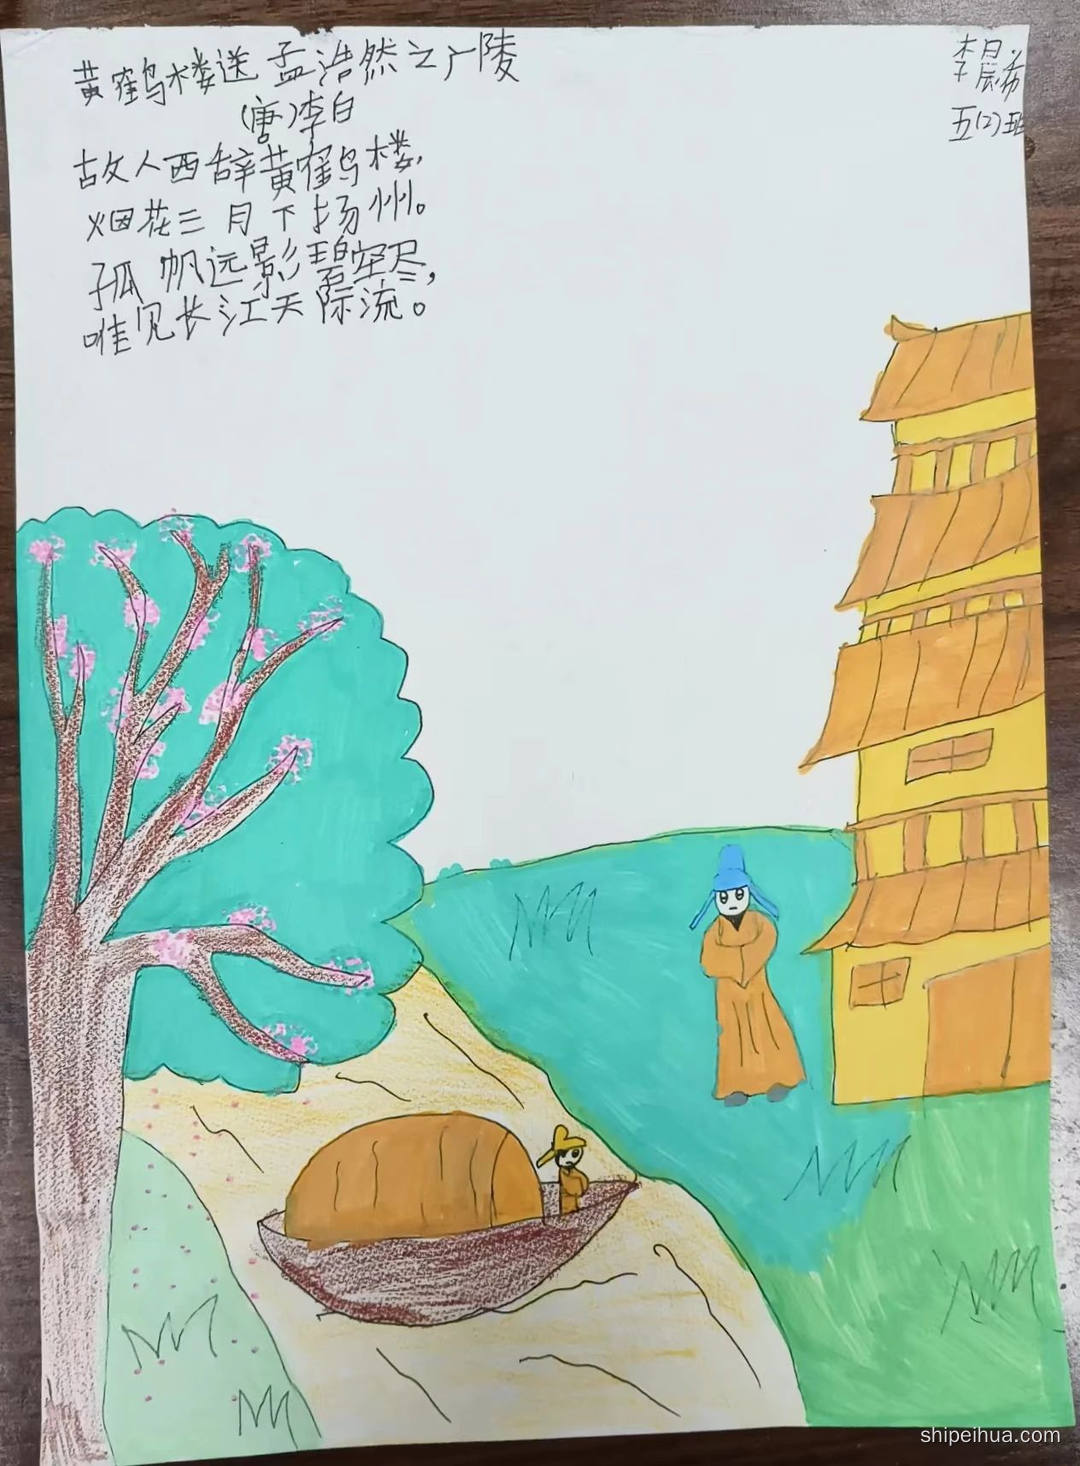 黄鹤楼送孟浩然之广陵
(唐)李白
故人西辞黄鹤楼,
烟花三月下扬州。
孤帆远影碧空尽,
唯见长江天际流。
李晨希
五(2)班
shipeihua.com